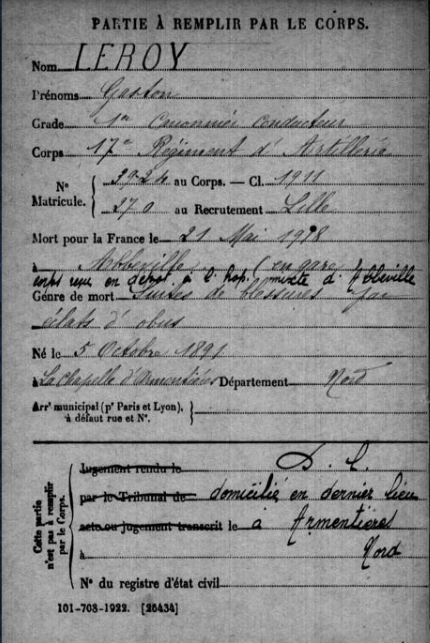 PARTIE À REMPLIR PAR LE CORPS.
Nom LEROY
Prénoms Gaston
Grade 1er Canonnier conducteur
Corps 17e Régiment d'Artillerie
N° Matricule. 3924 au Corps. — Cl. 1911
270 au Recrutement Lille
Mort pour la France le 21 Mai 1918
à Abbeville (en gare)
corps reçu en dépôt à l'hop. mixte d'Abbeville
Genre de mort Suites de blessures par
éclats d'obus
Né le 5 Octobre 1891
à La Chapelle d'Armentières Département Nord
Arrt municipal (pr Paris et Lyon), à défaut rue et N°.
Cette partie n'est pas à remplir par le Corps.
Jugement rendu le D. C.
par le Tribunal de domicilié en dernier lieu
acte ou jugement transcrit le à Armentières
à Nord
N° du registre d'état civil
101-708-1922. [26434]